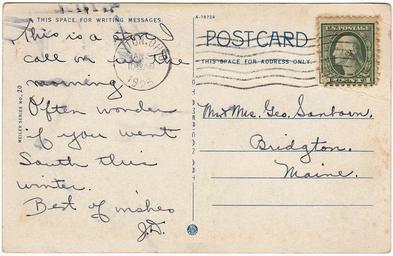 THIS SPACE FOR WRITING MESSAGES.
This is a
call on in the
morning.
Often wonder
if you went
South this
winter.
Best of wishes
J.D.
MEISER SERIES NO. 20
1925
A-78724
POSTCARD
THIS SPACE FOR ADDRESS ONLY.
U.S. POSTAGE
Mr & Mrs. Geo. Sanborn,
Bridgton,
Maine.